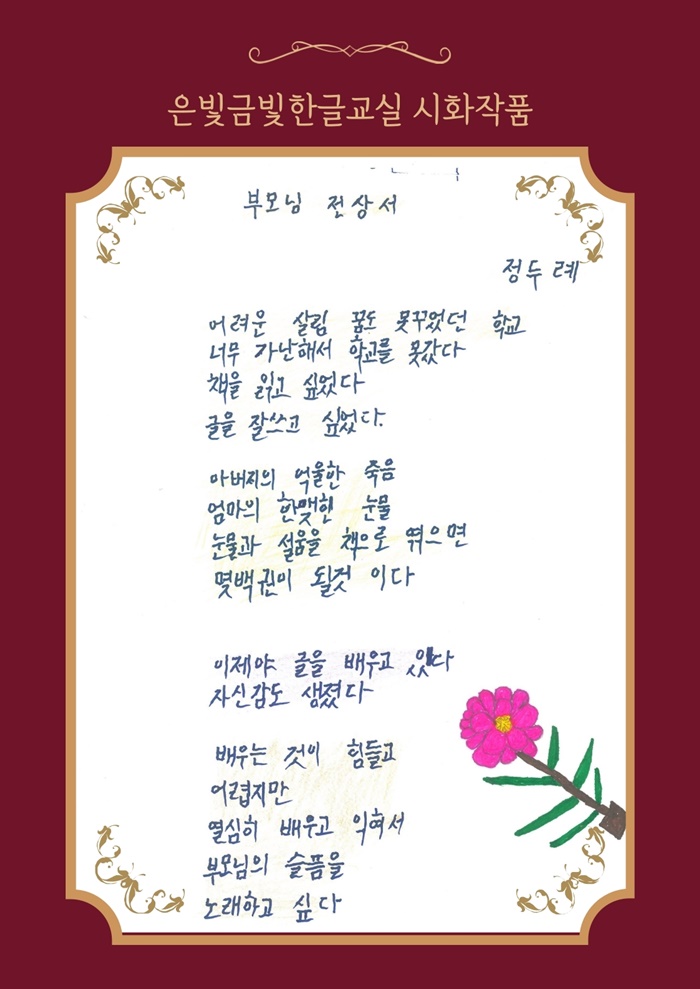 은빛금빛한글교실 시화작품
부모님 전상서
정두례
어려운 살림 꿈도 못꾸었던 학교
너무 가난해서 학교를 못갔다
책을 읽고 싶었다
글을 잘쓰고 싶었다.
아버지의 억울한 죽음
엄마의 한맺힌 눈물
눈물과 설움을 책으로 엮으면
몇백권이 될것 이다
이제야 글을 배우고 있다
자신감도 생겼다
배우는 것이 힘들고
어렵지만
열심히 배우고 익혀서
부모님의 슬픔을
노래하고 싶다